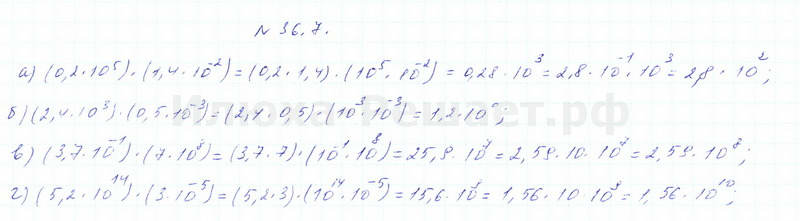 N 36.7.
а) (0,2·10⁵)·(1,4·10⁻²)=(0,2·1,4)·(10⁵·10⁻²)=0,28·10³=2,8·10⁻¹·10³=2,8·10²;
б) (2,4·10³)·(0,5·10⁻³)=(2,4·0,5)·(10³·10⁻³)=1,2·10⁰;
в) (3,7·10⁻¹)·(7·10⁸)=(3,7·7)·(10⁻¹·10⁸)=25,9·10⁷=2,59·10·10⁷=2,59·10⁸;
г) (5,2·10¹⁴)·(3·10⁻⁵)=(5,2·3)·(10¹⁴·10⁻⁵)=15,6·10⁹=1,56·10·10⁹=1,56·10¹⁰;